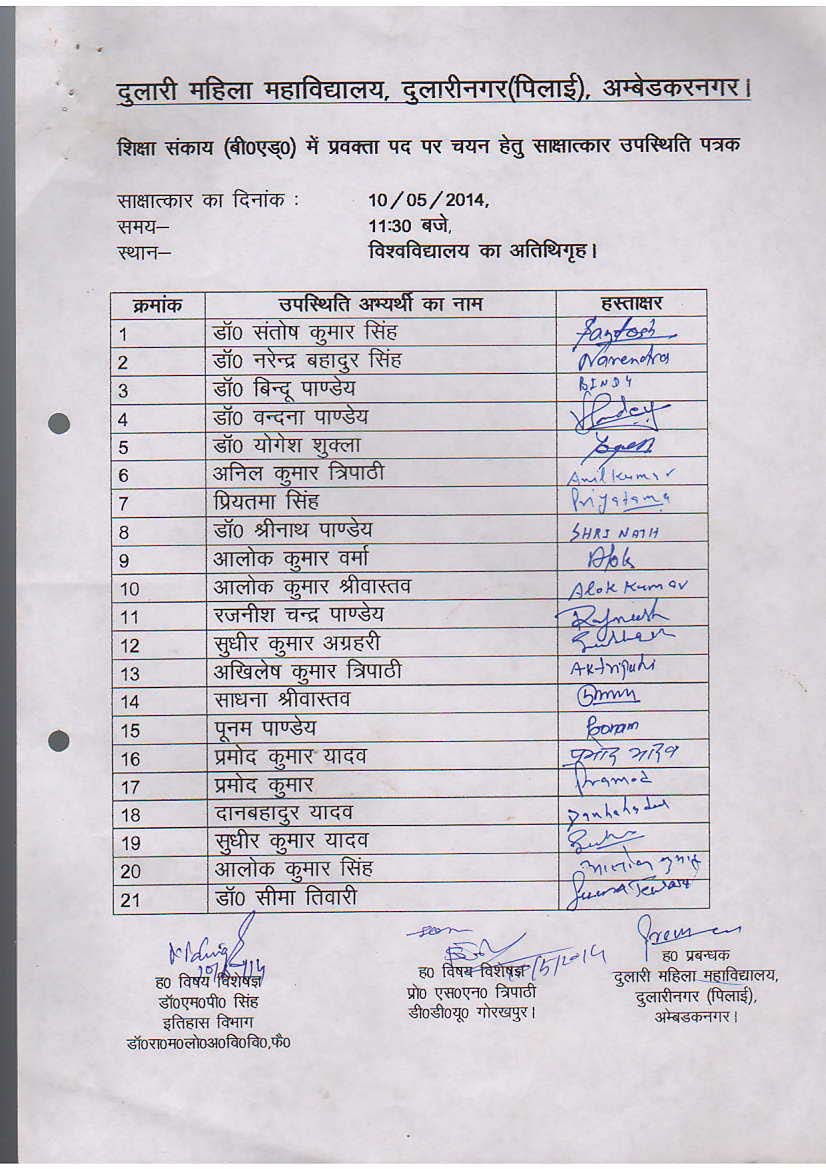 दुलारी महिला महाविद्यालय, दुलारीनगर(पिलाई), अम्बेडकरनगर।
शिक्षा संकाय (बी0एड्0) में प्रवक्ता पद पर चयन हेतु साक्षात्कार उपस्थिति पत्रक
साक्षात्कार का दिनांक : 10/05/2014,
समय– 11:30 बजे,
स्थान– विश्वविद्यालय का अतिथिगृह।
क्रमांक उपस्थिति अभ्यर्थी का नाम हस्ताक्षर
1 डॉ0 संतोष कुमार सिंह Santosh
2 डॉ0 नरेन्द्र बहादुर सिंह Narendra
3 डॉ0 बिन्दू पाण्डेय BINDU
4 डॉ0 वन्दना पाण्डेय
5 डॉ0 योगेश शुक्ला
6 अनिल कुमार त्रिपाठी Anil Kumar
7 प्रियतमा सिंह Priyatama
8 डॉ0 श्रीनाथ पाण्डेय SHRI NATH
9 आलोक कुमार वर्मा Alok
10 आलोक कुमार श्रीवास्तव Alok Kumar
11 रजनीश चन्द्र पाण्डेय Rajneesh
12 सुधीर कुमार अग्रहरी
13 अखिलेष कुमार त्रिपाठी AKTripathi
14 साधना श्रीवास्तव
15 पूनम पाण्डेय Poonam
16 प्रमोद कुमार यादव प्रमोद यादव
17 प्रमोद कुमार Pramod
18 दानबहादुर यादव Danbahadur
19 सुधीर कुमार यादव
20 आलोक कुमार सिंह आलोक कुमार
21 डॉ0 सीमा तिवारी Seema Tewari
ह0 विषय विशेषज्ञ
डॉ0एम0पी0 सिंह
इतिहास विभाग
डॉ0रा0म0लो0अ0वि0वि0,फै0
ह0 विषय विशेषज्ञ
प्रो0 एस0एन0 त्रिपाठी
डी0डी0यू0 गोरखपुर।
ह0 प्रबन्धक
दुलारी महिला महाविद्यालय,
दुलारीनगर (पिलाई),
अम्बेडकनगर।